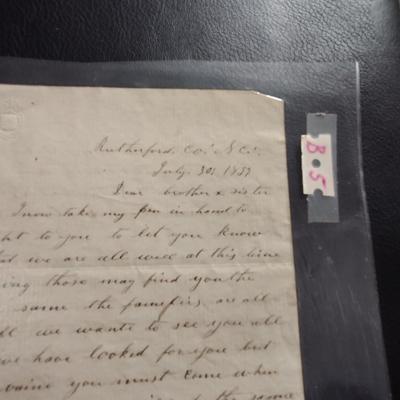 Rutherford. Co. N C.
July. 30. 1
Dear brother & sister
I now take my pen in hand to
ht to you to let you know
at we are all well at this time
ing those may find you the
same the are all
ll we wants to see you all
we have looked for you but
vaine you must come when
the same
B.5